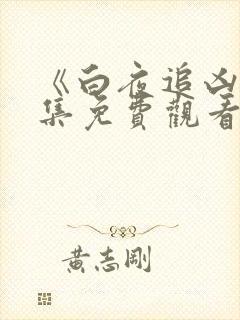 《白夜追凶
集免費觀看
黃志剛